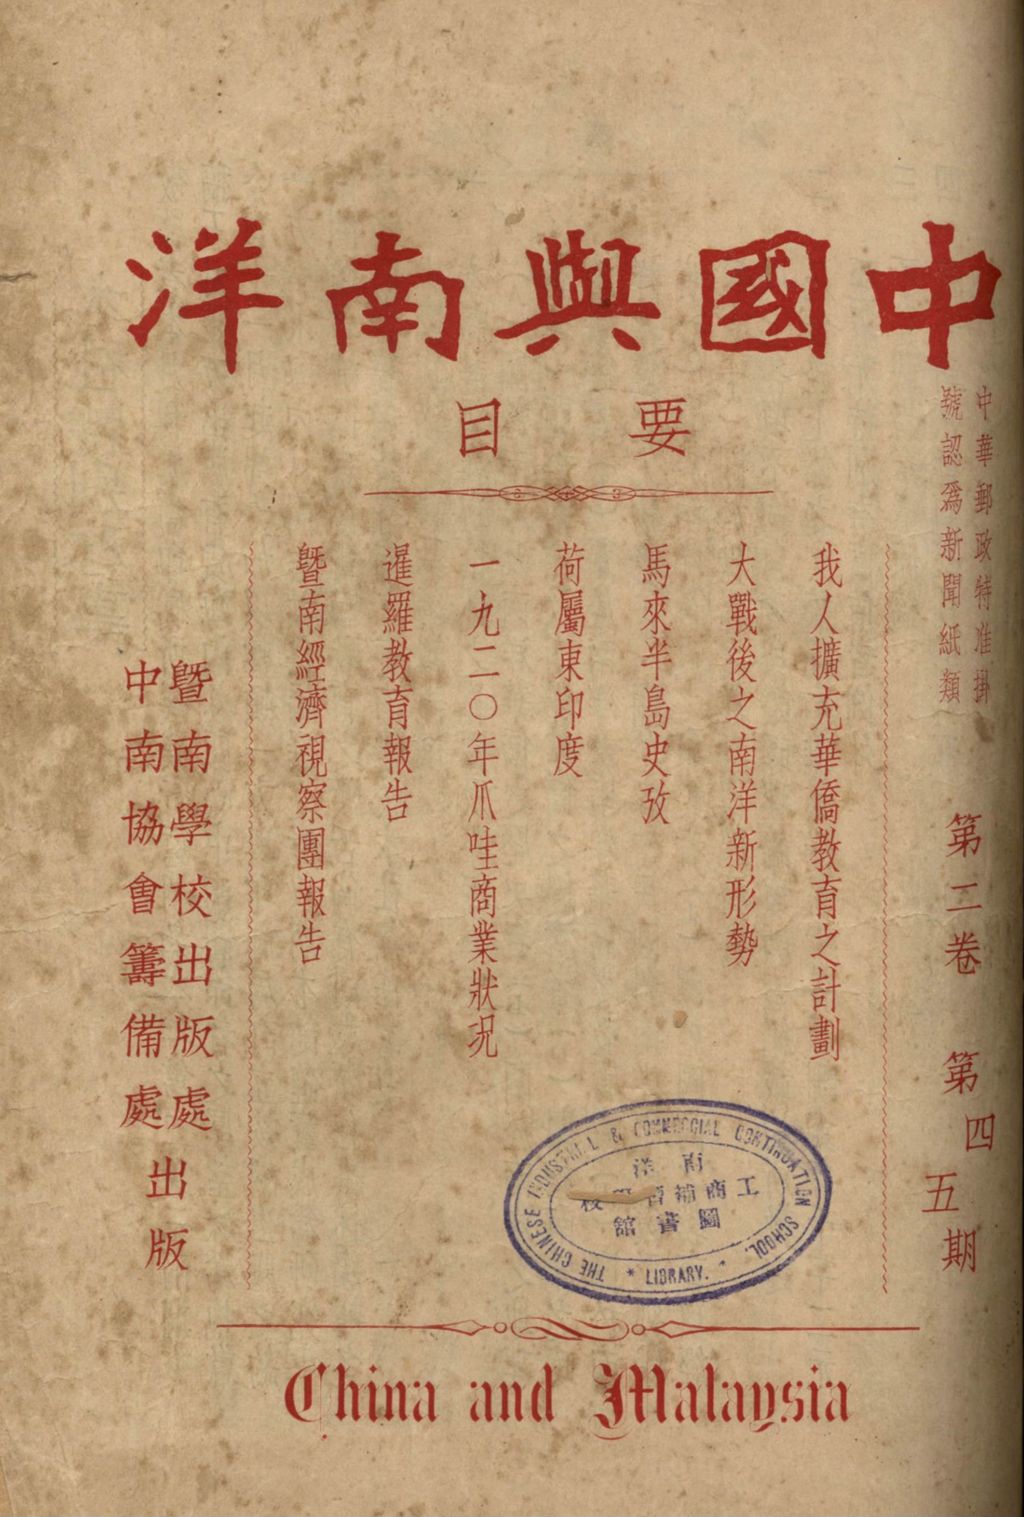 中國與南洋
中華郵政特准掛
號認爲新聞紙類
第二卷 第四五期
要目
我人擴充華僑教育之計劃
大戰後之南洋新形勢
馬來半島史攷
荷屬東印度
一九二〇年爪哇商業狀況
暹羅教育報告
暨南經濟視察團報告
暨南學校出版處
中南協會籌備處
出版
THE CHINESE INDUSTRIAL & COMMERCIAL CONTINUATION SCHOOL.
* LIBRARY. *
南洋
工商補習學校
圖書館
China and Malaysia